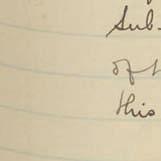 Sub-
of
this